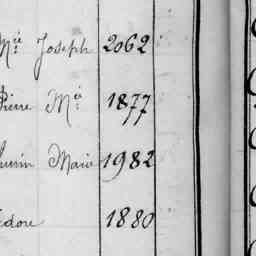 Mie Joseph 2062
Pierre Mie 1877
Marie 1982
1880